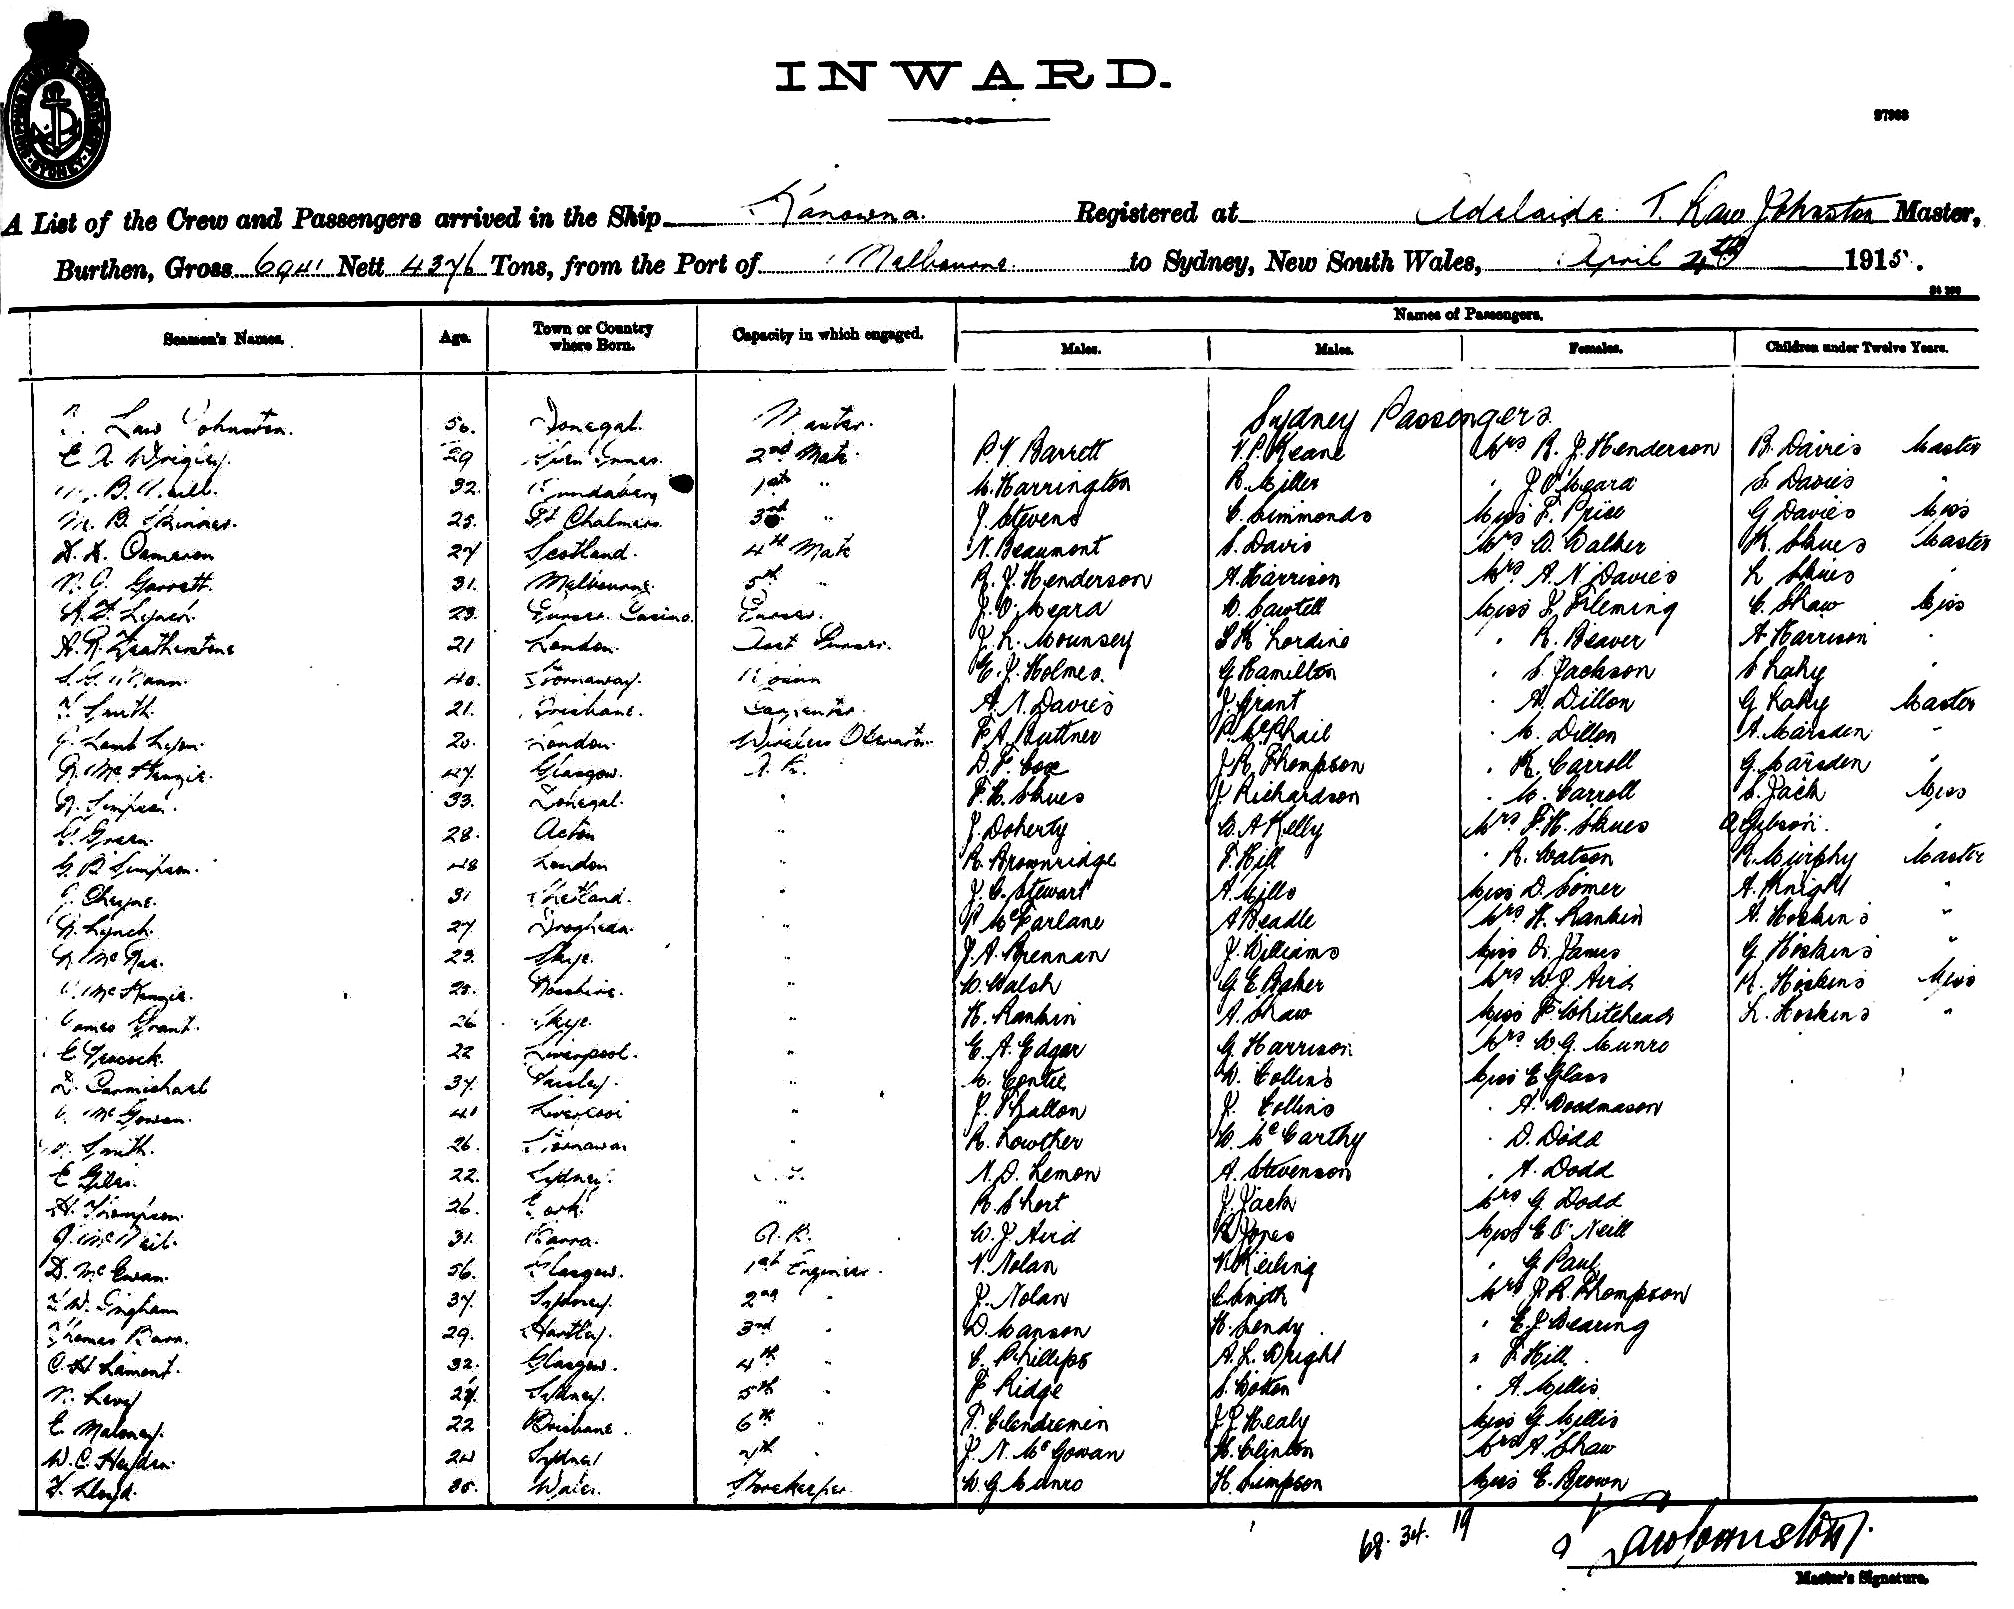 INWARD.
A List of the Crew and Passengers arrived in the Ship Kanowna Registered at Adelaide T. Law Johnston Master,
Burthen, Gross 6941 Nett 4376 Tons, from the Port of Melbourne to Sydney, New South Wales, April 4th 1915.
Seamen's Names. Age. Town or Country where Born. Capacity in which engaged. Names of Passengers.
Males. Males. Females. Children under Twelve Years.
Sydney Passengers
Law Johnston. 50. Donegal. Master.
E A Wrigley. 29 Glen Innes. 2nd Mate P. V. Barrett V. P. Keane Mrs R. J. Henderson B. Davies Master
B. 32. Bundaberg 1st " M. Harrington R. Miller " J. O'Meara S. Davies "
M. B. Skinner. 25. Pt Chalmers. 3rd " J. Stevens C. Simmonds Miss F. Price G. Davies Miss
D. D. Cameron 27 Scotland. 4th Mate N. Beaumont S. Davis Mrs W. Walker R. Skues Master
Garrett. 31. Melbourne 5th " R. J. Henderson A. Harrison Mrs A. N. Davies L Skues "
Lynch. 23. Casino. Purser. J. O'Meara W. Sawtell Miss J. Fleming C. Shaw Miss
A. R. Featherstone 21 London. Asst Purser. J. L. Mounsey Lordino " R. Beaver A Harrison "
Mann. 40. Stornaway. E. J. Holmes. G Hamilton " S. Jackson S Lahy "
Smith. 21. Brisbane. Carpenter. A. N. Davies J. Grant " A. Dillon G. Lahy Master
20. London. Wireless Operator. F. A. Buttner P. McPhail " M. Dillon A. Marsden "
McKenzie. 47. Glasgow. A. B. D. F. Cox J R Thompson " K. Carroll G. Marsden "
Simpson. 33. Donegal. " F. H. Skues J Richardson " M. Carroll S. Jack Miss
Green. 28. Acton " J. Doherty W. A Kelly Mrs F. H. Skues A Gibson. "
G. B. Simpson. 48 London " R. Brownridge F. Hill " R. Watson R. Murphy Master
Cheyne. 31 Shetland. " J. C. Stewart A. Mills Miss D. Somer A. Knight "
Lynch. 27 Drogheda. " P McFarlane A Headle Mrs H. Rankin A. Hoskins "
McRae. 23. Skye. " J. A. Brennan J. Williams Miss D. James G. Hoskins "
McKenzie. 25. " W. Walsh G. E. Baker Mrs W. J. Aird R. Hoskins Miss
James Grant. 26 Skye. " H. Rankin A. Shaw Miss F. Whitehead L. Hoskins "
E Peacock. 22 Liverpool. " E. A. Edgar G. Harrison Mrs W. G. Munro
D. Carmichael 37. Paisley. " M. Conte W. Collins Miss E Glass
McGowan. 41 Liverpool " J. Phallon J. Collins " A. Woodmason
Smith. 26. Stornaway " R. Lowther W. McCarthy " D. Dodd
E Giles. 22. Sydney. N. D. Lemon A. Stevenson " A. Dodd
H. Thompson. 26. Cork. " R. Short J. Jack Mrs G. Dodd
J. McNeil. 31. Barra. A. B. W. J. Aird R Jones Miss E O'Neill
D. McEwan. 56. Glasgow. 1st Engineer. N. Nolan Keiling " G. Paul
W. Bingham 37. Sydney. 2nd " J. Nolan C. Smith Mrs J. R. Thompson
Thomas Barr. 29. Hartley. 3rd " D. Manson H. Sendy " E. J. Wearing
C. H Lamont. 32. Glasgow. 4th " C. Phillips A. L. Wright " F. Hill
Levy 27. Sydney. 5th " F Ridge S. Cotton " A. Millis
E. Maloney. 22 Brisbane. 6th " Clendremin J J Healy Miss G. Millis
W. C. Haydon. 24 Sydney 7th " J. N. McGowan H. Clinton Mrs A. Shaw
Lloyd. 35. Wales. Storekeeper W. G Munro H. Simpson Miss E. Brown
68. 34. 19
Law Johnston
Master's Signature.